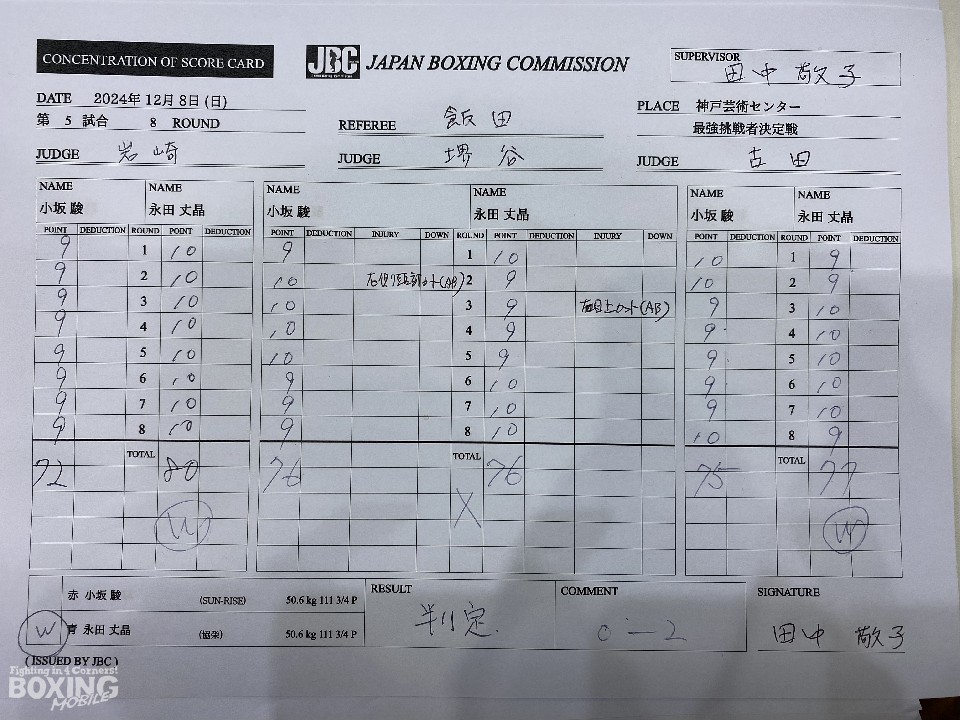 CONCENTRATION OF SCORE CARD
JBC JAPAN BOXING COMMISSION
SUPERVISOR 田中 敬子
DATE 2024年 12月 8日 (日)
第 5 試合 8 ROUND
REFEREE 飯田
PLACE 神戸芸術センター
最強挑戦者決定戦
JUDGE 岩崎
JUDGE 堺谷
JUDGE 古田
NAME NAME NAME NAME NAME NAME
小坂 駿 永田 丈晶 小坂 駿 永田 丈晶 小坂 駿 永田 丈晶
POINT DEDUCTION ROUND POINT DEDUCTION POINT DEDUCTION INJURY DOWN ROUND POINT DEDUCTION INJURY DOWN POINT DEDUCTION ROUND POINT DEDUCTION
9 1 10 9 1 10 10 1 9
9 2 10 10 右側頭部カット(AB) 2 9 10 2 9
9 3 10 10 3 9 右目上カット(AB) 9 3 10
9 4 10 10 4 9 9 4 10
9 5 10 10 5 9 9 5 10
9 6 10 9 6 10 9 6 10
9 7 10 9 7 10 9 7 10
9 8 10 9 8 10 10 8 9
72 TOTAL 80 76 TOTAL 76 75 TOTAL 77
W X W
赤 小坂 駿 (SUN-RISE) 50.6 kg 111 3/4 P
W 青 永田 丈晶 (協栄) 50.6 kg 111 3/4 P
RESULT
判定
COMMENT
0-2
SIGNATURE
田中 敬子
( ISSUED BY JBC )
Fighting in 4 Corners!
BOXING
MOBILE